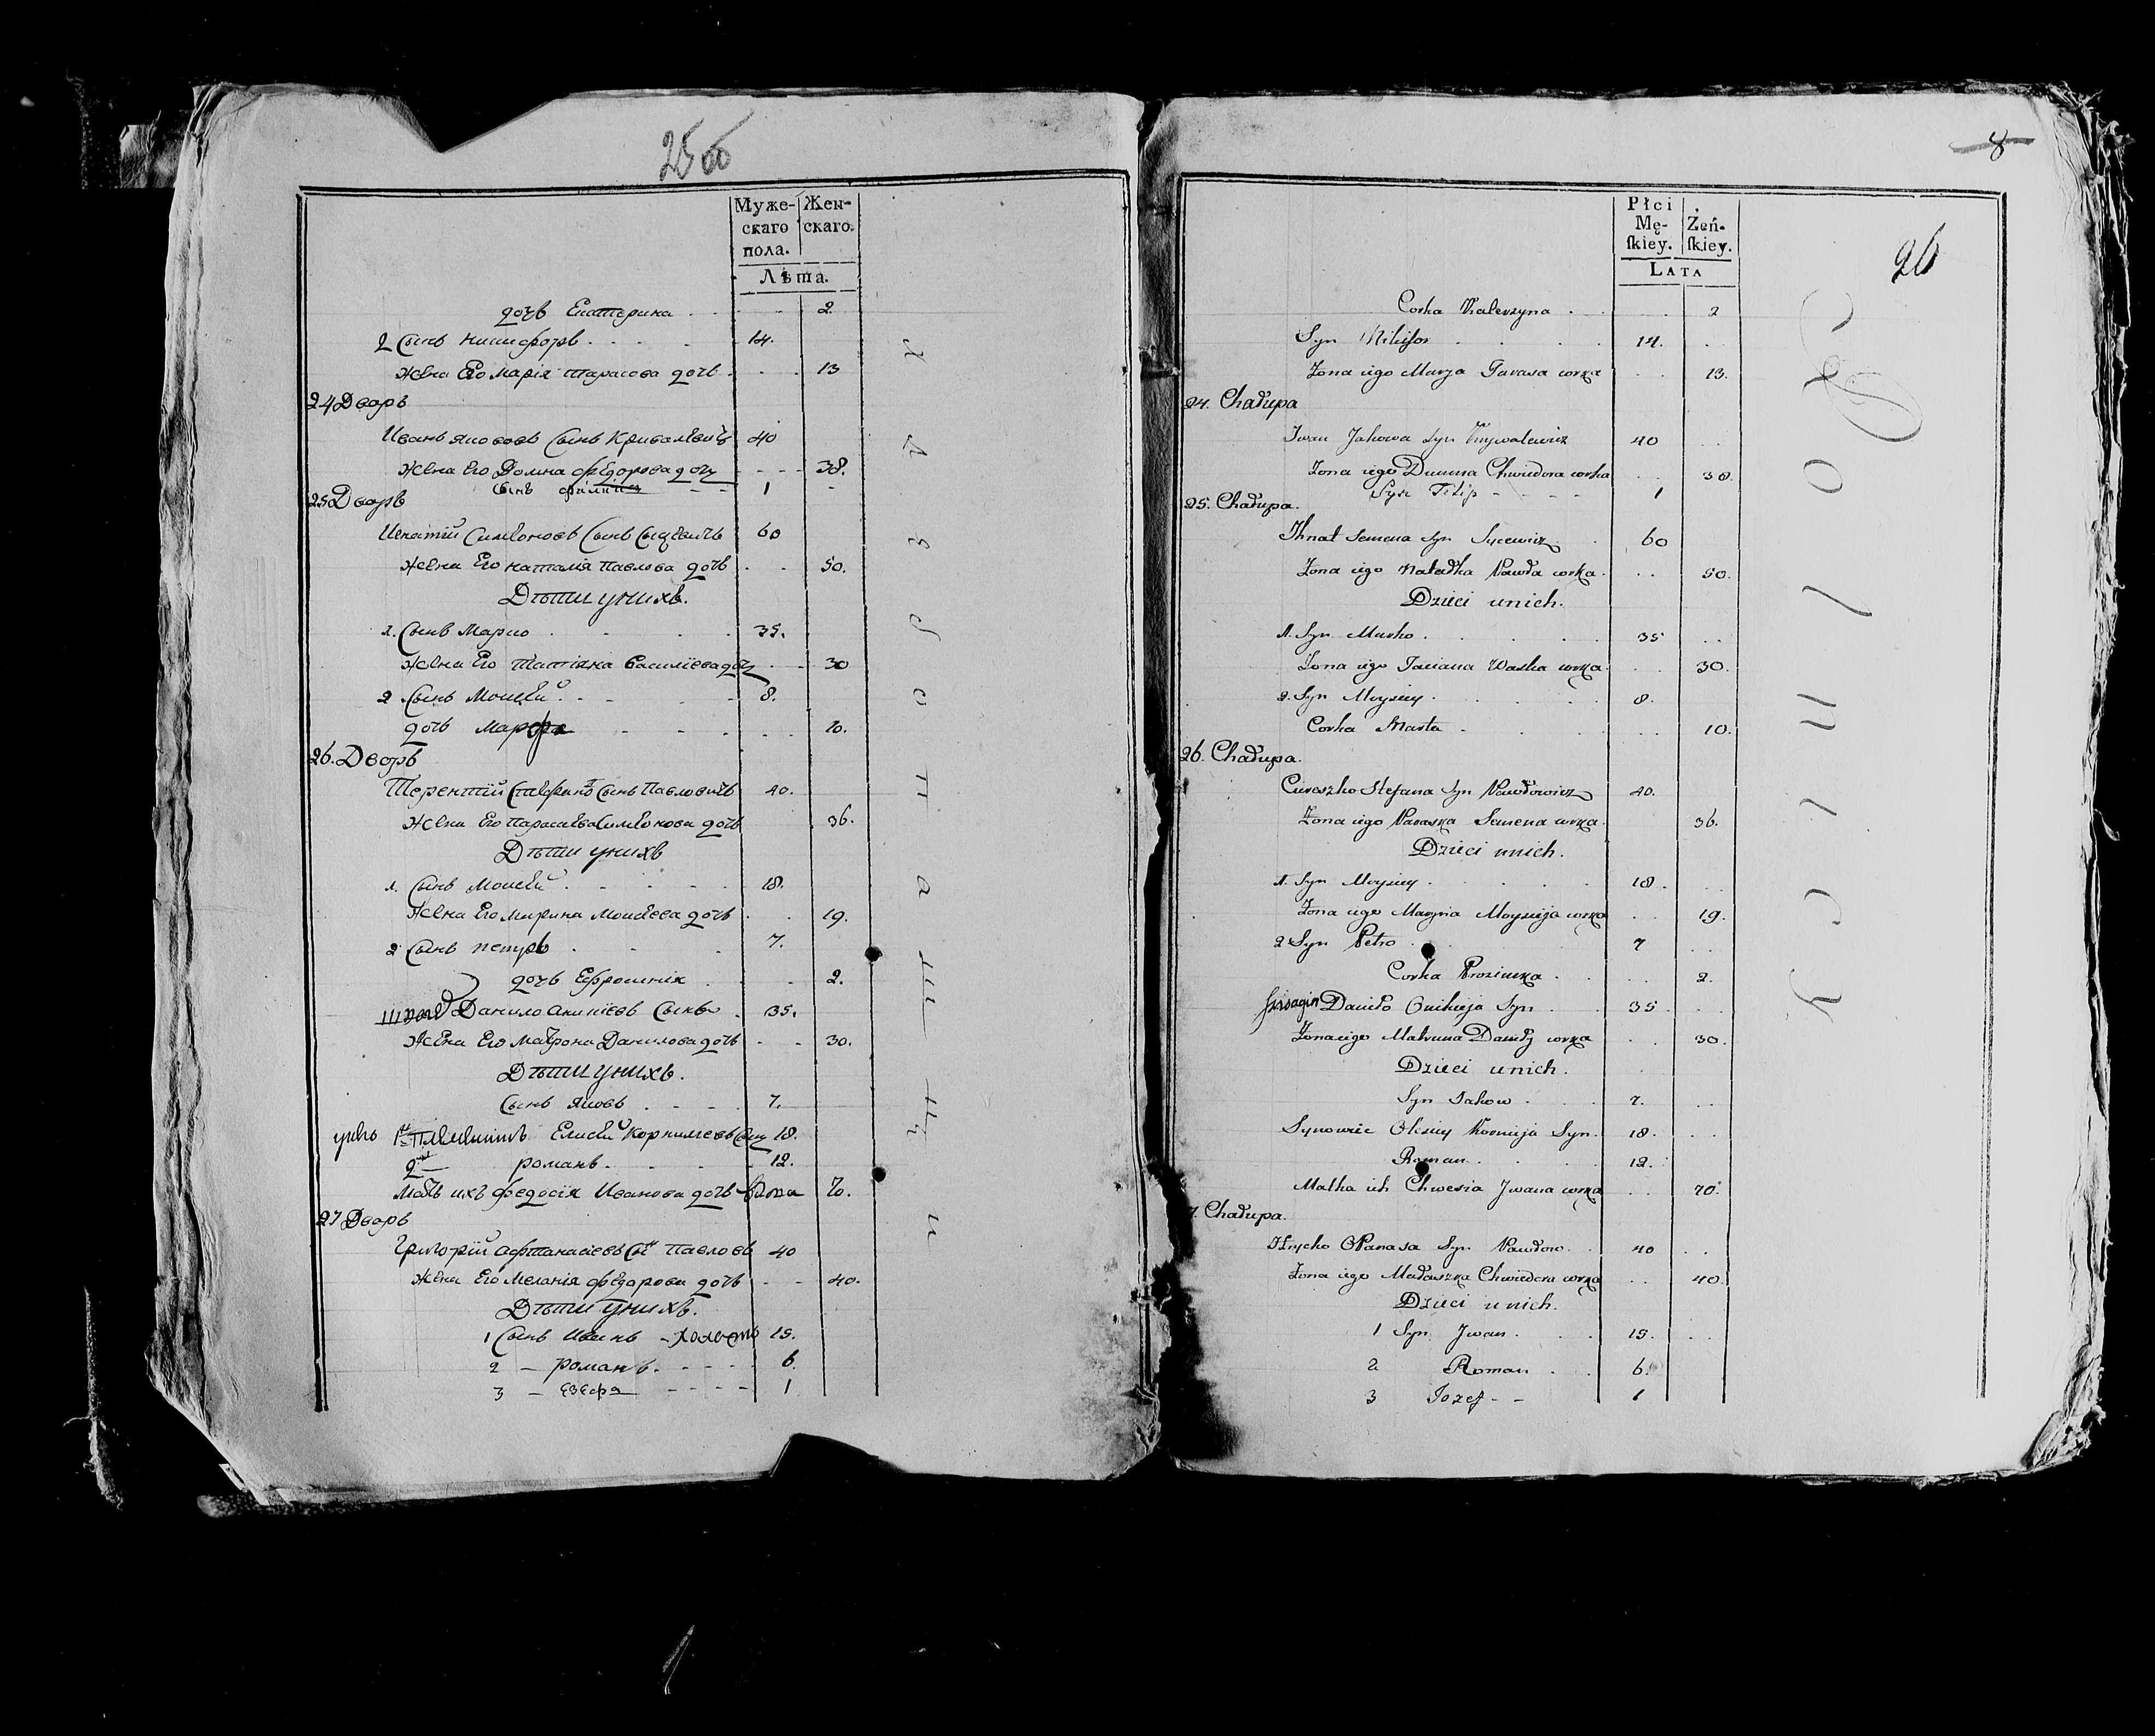 25об
Муже-
скаго
пола.
Жен-
скаго.
Лѣта.
дочь Екатерина 2.
2 Сынъ Никифоръ 14.
жена Его Марія Тарасова дочь 13
24 Дворъ
Иванъ Якововъ Сынъ Кривалевичъ 40
жена Его Домна Федорова дочь 38.
Сынъ Филипъ 1
25 Дворъ
Игнатій Симеоновъ Сынъ Сыцевичъ 60
жена Его Наталія Павлова дочь 50.
Дѣти у нихъ.
1. Сынъ Марко 35.
жена Его Татіяна Василіева дочь 30
2 Сынъ Моисей 8.
дочь Марфа 10.
26. Дворъ
Терентій Стефановъ Сынъ Павловичъ 40.
жена Его Парасева Симеонова дочь 36.
Дѣти у нихъ
1. Сынъ Моисей 18.
жена Его Марина Моисеева дочь 19.
2 Сынъ Петръ 7.
дочь Ефросинія 2.
Данило Сынъ 35.
жена Его Матрона Данилова дочь 30.
Дѣти у нихъ.
Сынъ Яковъ 7.
у нихъ 1й Племяникъ Елисей Корнилеевъ Сынъ 18.
2й — Романъ 12.
Мать ихъ Федосія Иванова дочь вдова 70.
27 Дворъ
Григорій Афтанасіевъ Сынъ Павловъ 40
жена Его Меланія Федорова дочь 40.
Дѣти у нихъ.
1 Сынъ Иванъ – холостъ 15.
2 — Романъ 6.
3 — Езефа 1
8
26
Płci
Mę-
ſkiey.
Żeń-
ſkiey.
LATA
Corka Katerzyna 2
Syn Nikifor 14.
Żona iego Marya Tarasa corka 13.
24. Chałupa
Iwan Jakowa Syn Krywalewicz 40
Żona iego Dumna Chwiedora corka 38.
Syn Filip 1
25. Chałupa.
Ihnat Semena Syn Sycewicz 60
Żona iego Natałka Pawła corka 50.
Dzieci u nich.
1. Syn Marko 35
Żona iego Taciana Waska corka 30.
2. Syn Moysiey 8.
Corka Marta 10.
26. Chałupa.
Ciereszko Stefana Syn Pawłowicz 40.
Żona iego Paraska Semena corka 36.
Dzieci u nich.
1. Syn Moysiey 18.
Żona iego Maryna Moysieja corka 19.
2 Syn Petro 7
Corka Prosimka 2.
Daniło Onikieja Syn 35
Żona iego Matruna Daniły corka 30.
Dzieci u nich.
Syn Jakow 7.
Synowiec Olesiey Kornieja Syn 18.
Roman 12.
Matka ich Chwesia Jwana corka 70.
7. Chałupa.
Hrycko Opanasa Syn Pawłow 40
Żona iego Małaszka Chwiedora corka 40.
Dzieci u nich.
1 Syn Jwan 15.
2 Roman 6.
3 Jozef 1